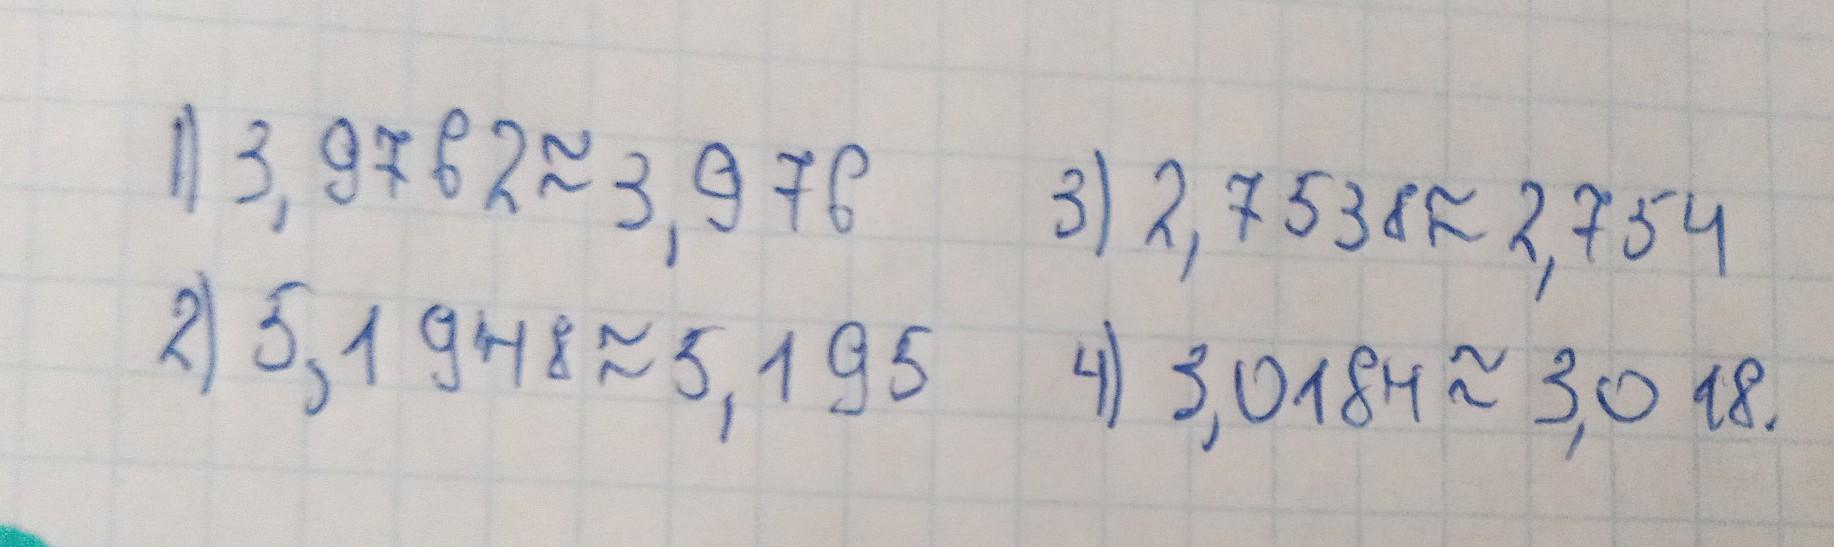 1) 3,9762≈3,976
2) 5,1948≈5,195
3) 2,7538≈2,754
4) 3,0184≈3,018.